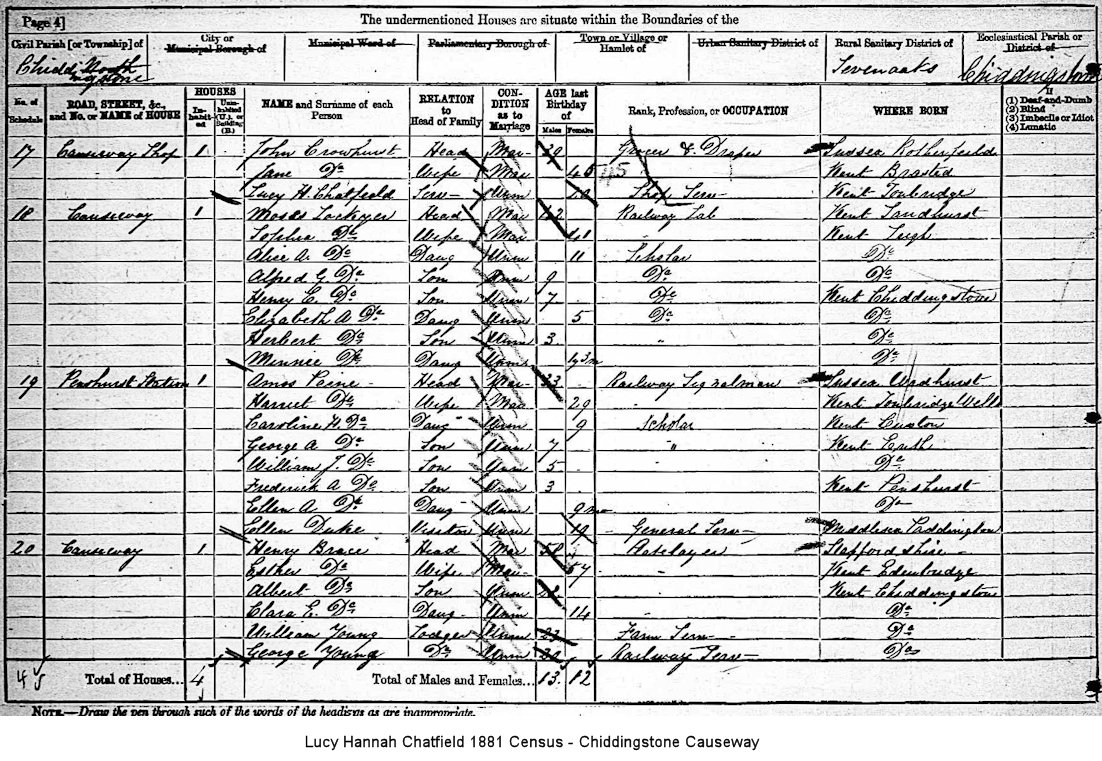 Page 4]
The undermentioned Houses are situate within the Boundaries of the
Civil Parish [or Township] of
City or Municipal Borough of
Municipal Ward of
Parliamentary Borough of
Town or Village or Hamlet of
Urban Sanitary District of
Rural Sanitary District of
Ecclesiastical Parish or District of
Sevenoaks Chiddingstone
No. of Schedule
ROAD, STREET, &c., and No. or NAME of HOUSE
HOUSES
Inhabited
Uninhabited (U.), or Building (B.)
NAME and Surname of each Person
RELATION to Head of Family
CONDITION as to Marriage
AGE last Birthday of
Males Females
Rank, Profession, or OCCUPATION
WHERE BORN
If
(1) Deaf-and-Dumb
(2) Blind
(3) Imbecile or Idiot
(4) Lunatic
17 Causeway Shop 1 John Crowhurst Head Mar Grocer & Draper Sussex Rotherfield
Jane Do Wife Mar 45 Kent Brasted
Lucy H. Chatfield Serv Unm Shop Serv Kent Tonbridge
18 Causeway 1 Moses Lockyer Head Mar 42 Railway Lab Kent Sandhurst
Sophia Do Wife Mar 41 " Kent Leigh
Alice A. Do Daug Unm 11 Scholar Do
Alfred G. Do Son Unm 9 Do Do
Henry C. Do Son Unm 7 Do Kent Chiddingstone
Elizabeth A Do Daug Unm 5 Do Do
Herbert Do Son Unm 3 " Do
Minnie Do Daug Unm Do
19 Penshurst Station 1 Amos Head Mar 33 Railway Signalman Sussex Wadhurst
Harriet Do Wife Mar 29 " Kent Tonbridge Wells
Caroline H. Do Daug Unm 9 Scholar Kent
George A Do Son Unm 7 " Kent Erith
William J. Do Son Unm 5 Do
Frederick A Do Son Unm 3 Kent Penshurst
Ellen A. Do Daug Unm 9 m Do
Ellen Duke Visitor Unm 19 General Serv Middlesex Paddington
20 Causeway 1 Henry Brace Head Mar Platelayer Staffordshire
Esther Do Wife Mar 57 " Kent Edenbridge
Albert Do Son Unm Kent Chiddingstone
Clara E. Do Daug Unm 14 " Do
William Young Lodger Unm 23 Farm Serv Do
George Young Do Unm Railway Serv Do
4 Total of Houses... 4 Total of Males and Females... 13 12
NOTE.—Draw the pen through such of the words of the headings as are inappropriate.
Lucy Hannah Chatfield 1881 Census - Chiddingstone Causeway